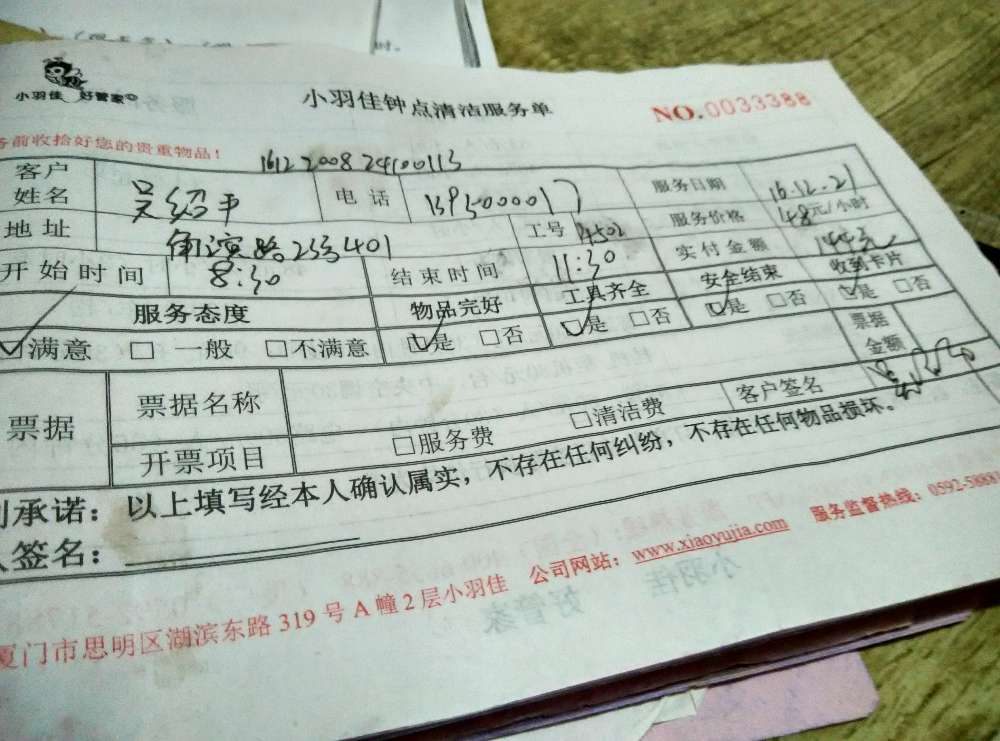 小羽佳 好管家
小羽佳钟点清洁服务单
NO.0033388
前收拾好您的贵重物品!
1612200824100113
客户姓名 吴绍平 电话 服务日期 16.12.21
地址 233 401 工号 服务价格 48元/小时
开始时间 8:30 结束时间 11:30 实付金额 144元
服务态度 物品完好 工具齐全 安全结束 收到卡片
☑满意 □一般 □不满意 ☑是 □否 ☑是 □否 ☑是 □否 ☑是 □否
票据 票据名称 票据金额
开票项目 □服务费 □清洁费 客户签名
承诺：以上填写经本人确认属实，不存在任何纠纷，不存在任何物品损坏。
签名：
厦门市思明区湖滨东路319号A幢2层小羽佳 公司网站：www.xiaoyujia.com 服务监督热线：0592-
小羽佳
好管家